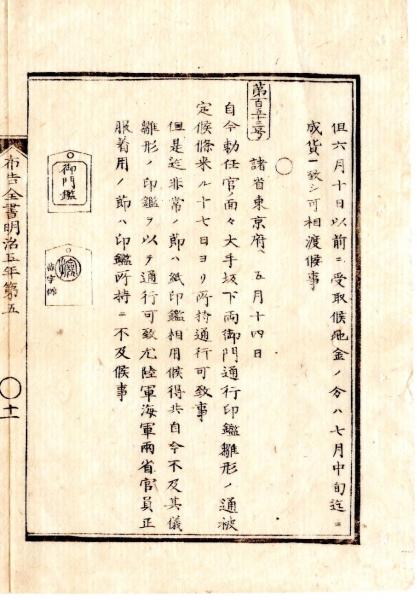 但六月十日以前ニ受取候地金ノ分ハ七月中旬迄ニ
成貨一致シ可相渡候事
第百五十三号
諸省東京府ヘ五月十四日
自今勅任官ノ面々大手坂下両御門通行印鑑雛形ノ通被
定候條来ル十七日ヨリ所持通行可致事
但是迄非常ノ節ハ紙印鑑相用候得共自今不及其儀
雛形ノ印鑑ヲ以テ通行可致尤陸軍海軍両省官員正
服着用ノ節ハ印鑑所持ニ不及候事
御門鑑
布告全書明治五年第五
十一